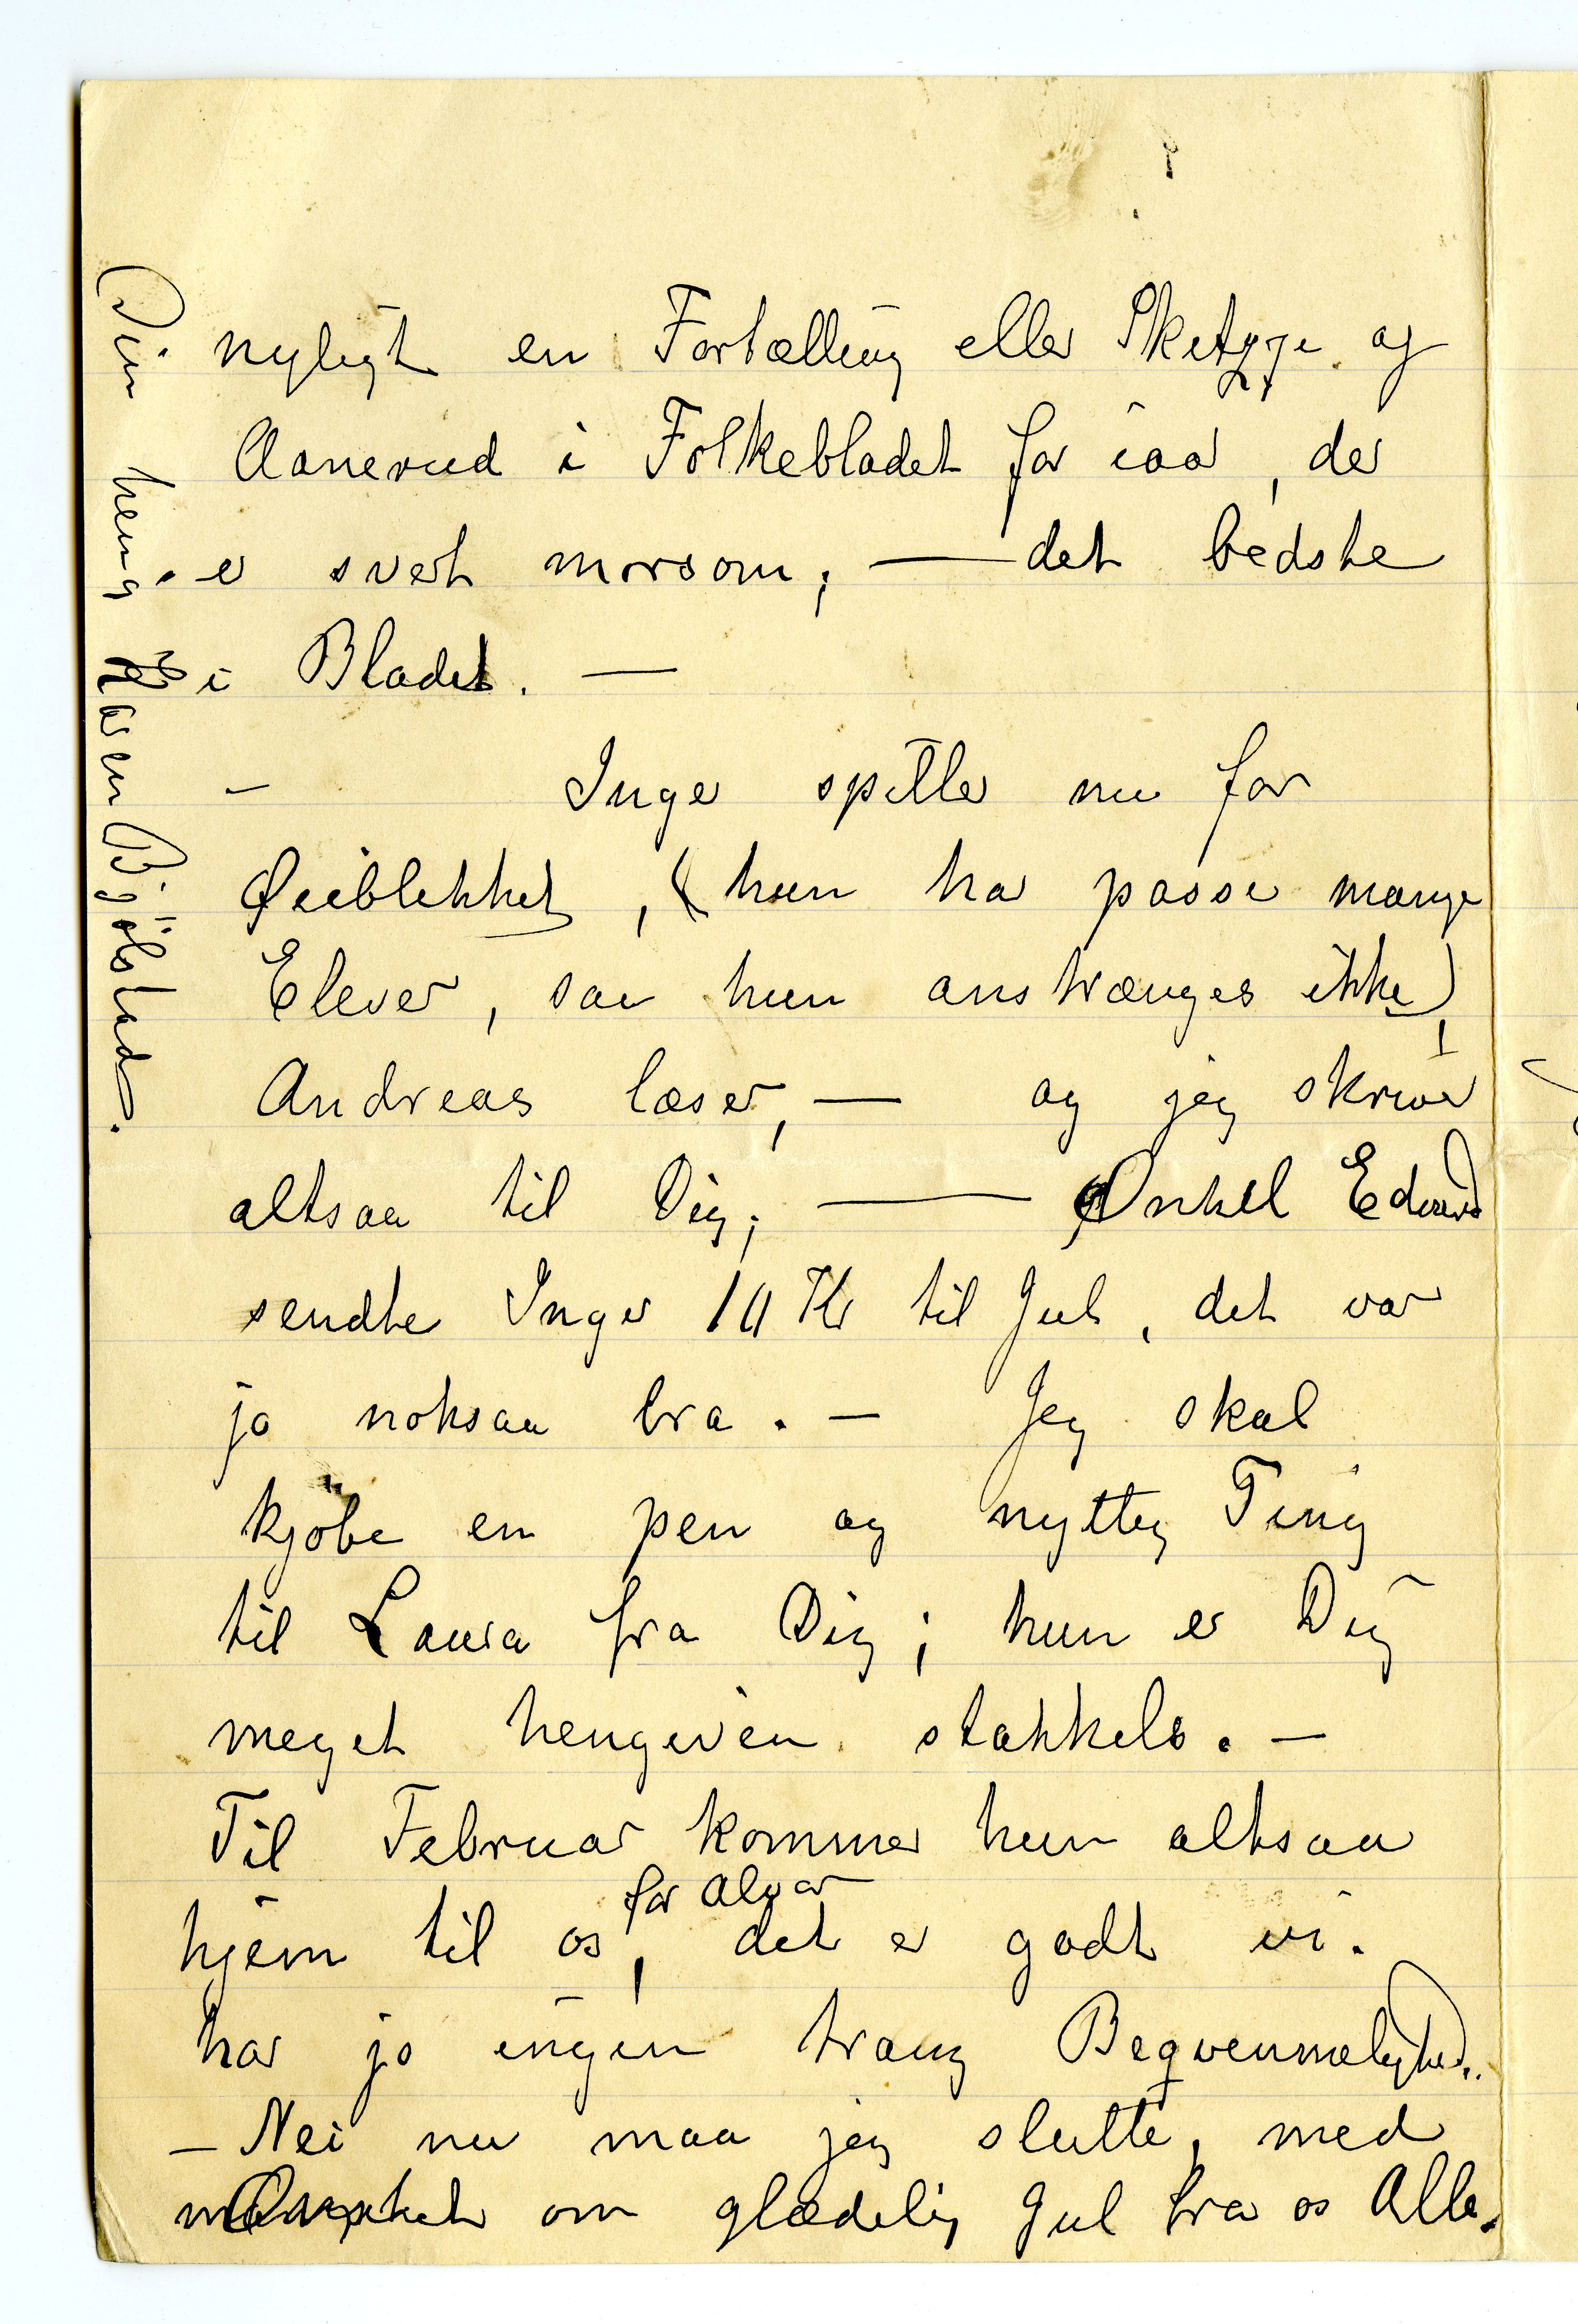 nyligt en Fortælling eller Skitzze af
Aanerud i Folkebladet for iaar, der
er svert morsom; — det bedste
i Bladet. —
— Inger spiller nu for
Øieblikket, (hun har passe mange
Elever, saa hun anstrænges ikke),
Andreas læser, — og jeg skriver
altsaa til Dig; — Onkel Edvard
sendte Inger 10 Kr til Jul, det var
jo noksaa bra. — Jeg skal
kjöbe en pen og nyttig Ting
til Laura fra Dig; hun er Dig
meget hengiven stakkels. —
Til Februar kommer hun altsaa
for Alvor
hjem til os, det er godt vi
har jo ingen trang Beqvemmelighed..
— Nei nu maa jeg slutte, med
Ønsket om glædelig Jul fra os Alle.
Din heng Karen Bjölstad.